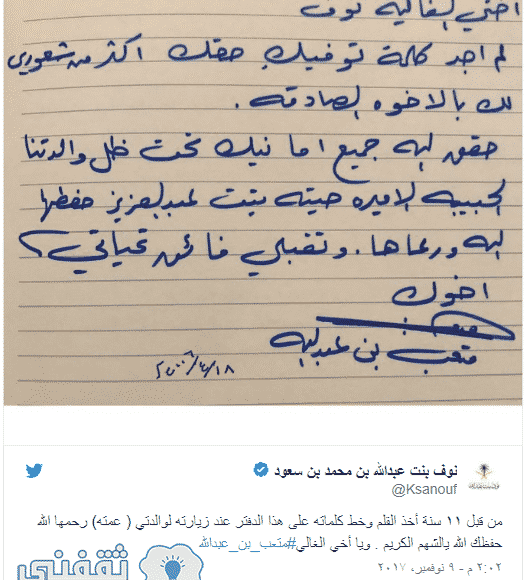 اختي الغاليه نوف
لم اجد كلمة توفيك حقك اكثر من شعوري
لك بالاخوه الصادقه .
حقق الله جميع امانيك تحت ظل والدتنا
الحبيبه الاميره صيته بنت عبدالعزيز حفظها
الله ورعاها . وتقبلي فائق تحياتي ؟
اخوك
متعب بن عبدالله
نوف بنت عبدالله بن محمد بن سعود
@Ksanouf
من قبل ١١ سنة أخذ القلم وخط كلماته على هذا الدفتر عند زيارته لوالدتي ( عمته) رحمها الله
حفظك الله يالشهم الكريم . ويا أخي الغالي#متعب_بن_عبدالله
٢:٠٢ م - ٩ نوفمبر، ٢٠١٧
ثقفني